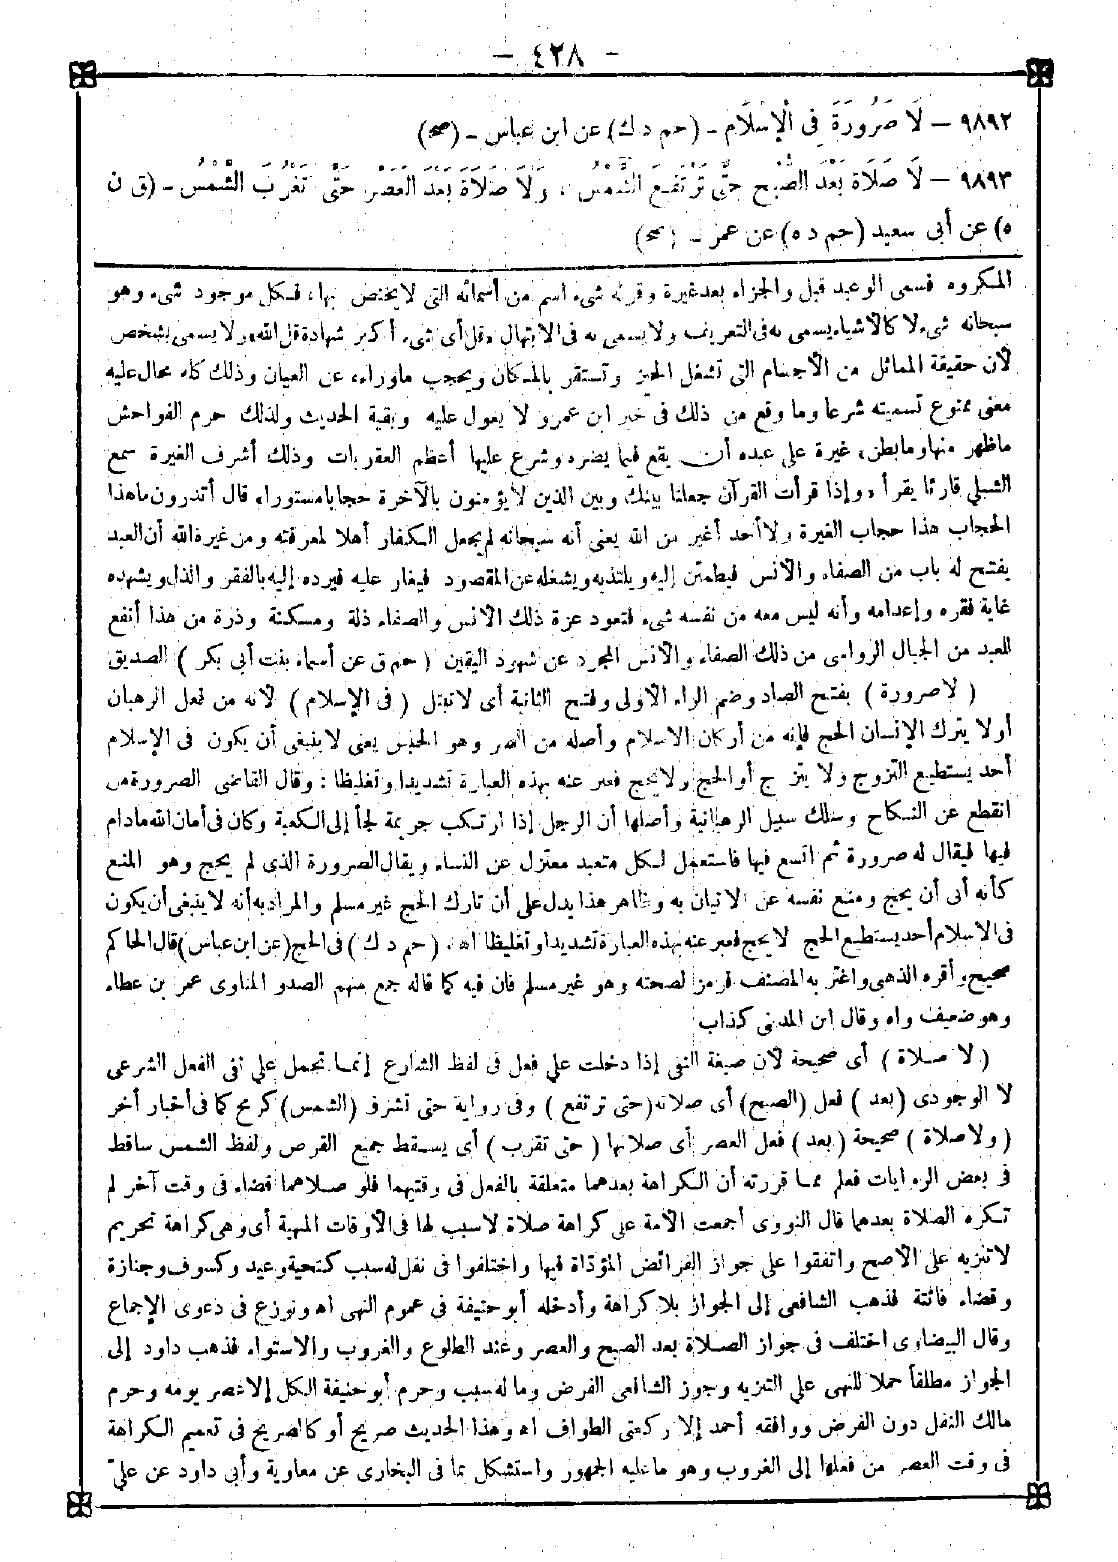 - ٤٢٨ -
٩٨٩٢ - لَا صَرُورَةَ فِي الْإِسْلَامِ - (حم د ك) عن ابن عباس - (صح)
٩٨٩٣ - لَا صَلَاةَ بَعْدَ الصُّبْحِ حَتَّى تَرْتَفِعَ الشَّمْسُ، وَلَا صَلَاةَ بَعْدَ الْعَصْرِ حَتَّى تَغْرُبَ الشَّمْسُ - (ق ن
ه) عن أبى سعيد (حم د ه) عن عمر - (صح)
المكروه فسمى الوعيد قبل والجزاء بعد غيرة وقوله شىء اسم من أسمائه التى لا يختص بها، فكل موجود شىء وهو
سبحانه شىء لا كالأشياء يسمى به فى التعريف ولا يسمى به فى الابتهال «قل أى شىء أكبر شهادة قل الله» ولا يسمى بشخص
لأن حقيقة المماثل من الأجسام التى تشغل الحيز وتستقر بالمكان ويحجب ما وراءه عن العيان وذلك كله محال عليه
معنى ممنوع تسميته شرعا وما وقع من ذلك فى خبر ابن عمرو لا يعول عليه وبقية الحديث ولذلك حرم الفواحش
ما ظهر منها وما بطن، غيرة على عبده أن يقع فيما يضره وشرع عليها أعظم العقوبات وذلك أشرف الغيرة سمع
الشبلى قارئا يقرأ «وإذا قرأت القرآن جعلنا بينك وبين الذين لا يؤمنون بالآخرة حجابا مستورا» قال أتدرون ما هذا
الحجاب هذا حجاب الغيرة ولا أحد أغير من الله يعنى أنه سبحانه لم يجعل الكفار أهلا لمعرفته ومن غيرة الله أن العبد
يفتح له باب من الصفاء والأنس فيطمئن إليه ويلتذ به ويشغله عن المقصود فيغار عليه فيرده إليه بالفقر والذل ويشهده
غاية فقره وإعدامه وأنه ليس معه من نفسه شىء فتعود عزة ذلك الأنس والصفاء ذلة ومسكنة وذرة من هذا أنفع
للعبد من الجبال الرواسى من ذلك الصفاء والأنس المجرد عن شهود اليقين (حم ق عن أسماء بنت أبى بكر) الصديق
(لا صرورة) بفتح الصاد وضم الراء الأولى وفتح الثانية أى لا تبتل (فى الإسلام) لأنه من فعل الرهبان
أو لا يترك الإنسان الحج فإنه من أركان الاسلام وأصله من الصر وهو الحبس يعنى لا ينبغى أن يكون فى الإسلام
أحد يستطيع التزوج ولا يتزوج أو الحج ولا يحج فعبر عنه بهذه العبارة تشديدا وتغليظا : وقال القاضى الصرورة من
انقطع عن النكاح وسلك سبيل الرهبانية وأصلها أن الرجل إذا ارتكب جريمة لجأ إلى الكعبة وكان فى أمان الله مادام
فيها فيقال له صرورة ثم اتسع فيها فاستعمل لكل متعبد معتزل عن النساء ويقال الصرورة الذى لم يحج وهو المنع
كأنه أبى أن يحج ومنع نفسه عن الاتيان به وظاهر هذا يدل على أن تارك الحج غير مسلم والمراد به أنه لا ينبغى أن يكون
فى الاسلام أحد يستطيع الحج لا يحج فعبر عنه بهذه العبارة تشديدا وتغليظا اه. (حم د ك) فى الحج (عن ابن عباس) قال الحاكم
صحيح وأقره الذهبى واغتر به المصنف فرمز لصحته وهو غير مسلم فان فيه كما قاله جمع منهم الصدر المناوى عمر بن عطاء
وهو ضعيف واه وقال ابن المدنى كذاب
(لا صلاة) أى صحيحة لأن صيغة النفى إذا دخلت على فعل فى لفظ الشارع إنما تحمل على نفى الفعل الشرعى
لا الوجودى (بعد) فعل (الصبح) أى صلاته (حتى ترتفع) وفى رواية حتى تشرق (الشمس) كرمح كما فى أخبار أخر
(ولا صلاة) صحيحة (بعد) فعل العصر أى صلاتها (حتى تغرب) أى يسقط جميع القرص ولفظ الشمس ساقط
فى بعض الروايات فعلم مما قررته أن الكراهة بعدهما متعلقة بالفعل فى وقتيهما فلو صلاهما قضاء فى وقت آخر لم
تكره الصلاة بعدهما قال النووى أجمعت الأمة على كراهة صلاة لا سبب لها فى الأوقات المنهية أى وهى كراهة تحريم
لا تنزيه على الأصح واتفقوا على جواز الفرائض المؤداة فيها واختلفوا فى نفل له سبب كتحية وعيد وكسوف وجنازة
وقضاء فائتة فذهب الشافعى إلى الجواز بلا كراهة وأدخله أبو حنيفة فى عموم النهى اه ونوزع فى دعوى الإجماع
وقال البيضاوى اختلف فى جواز الصلاة بعد الصبح والعصر وعند الطلوع والغروب والاستواء فذهب داود إلى
الجواز مطلقاً حملا للنهى على التنزيه وجوز الشافعى الفرض وما له سبب وحرم أبو حنيفة الكل إلا عصر يومه وحرم
مالك النفل دون الفرض ووافقه أحمد إلا ركعتى الطواف اه وهذا الحديث صريح أو كالصريح فى تعميم الكراهة
فى وقت العصر من فعلها إلى الغروب وهو ما عليه الجمهور واستشكل بما فى البخارى عن معاوية وأبى داود عن علىّ